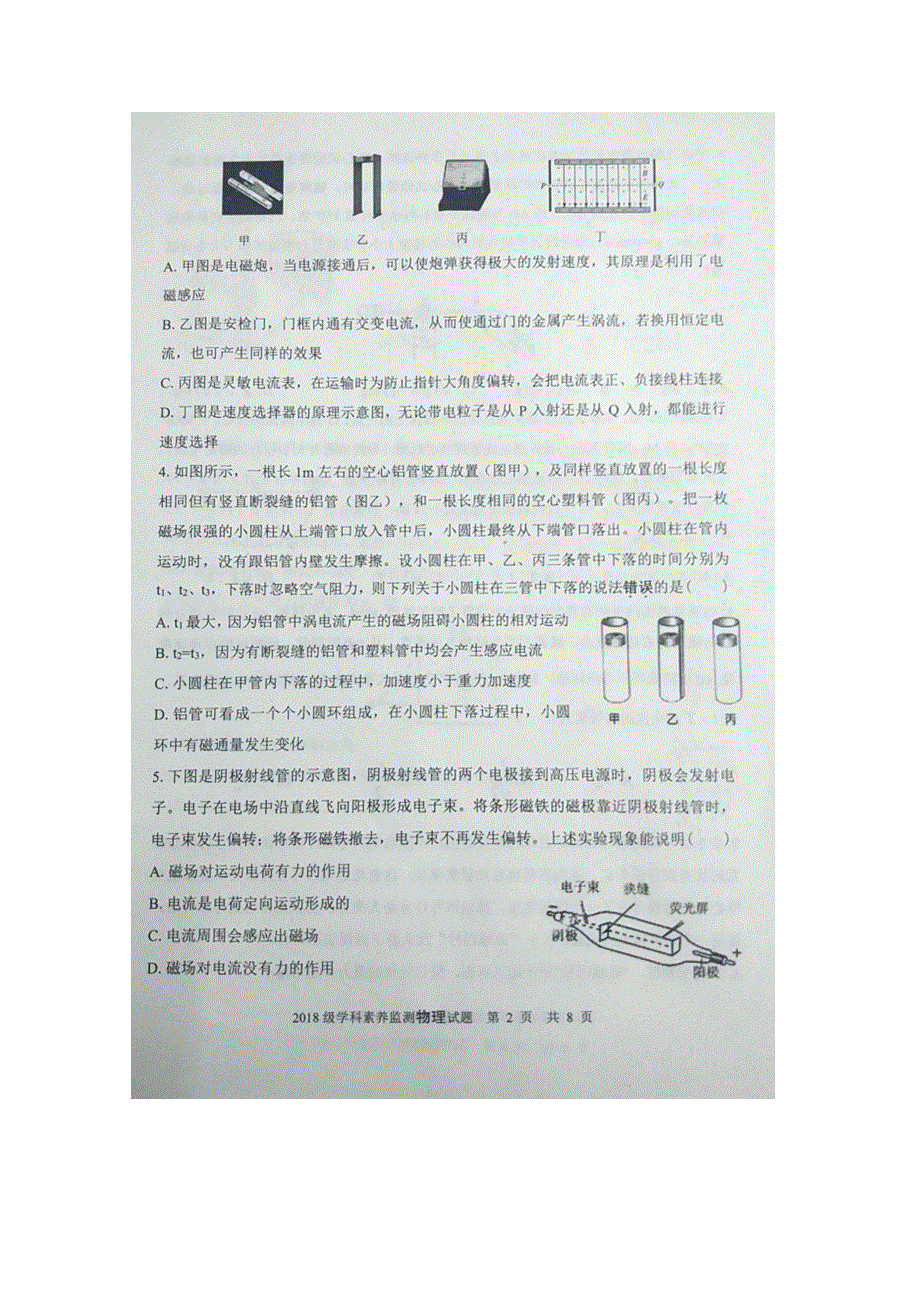 P
B
E
Q
甲 乙 丙 丁
A. 甲图是电磁炮，当电源接通后，可以使炮弹获得极大的发射速度，其原理是利用了电
磁感应
B. 乙图是安检门，门框内通有交变电流，从而使通过门的金属产生涡流，若换用恒定电
流，也可产生同样的效果
C. 丙图是灵敏电流表，在运输时为防止指针大角度偏转，会把电流表正、负接线柱连接
D. 丁图是速度选择器的原理示意图，无论带电粒子是从 P 入射还是从 Q 入射，都能进行
速度选择
4. 如图所示，一根长 1m 左右的空心铝管竖直放置（图甲），及同样竖直放置的一根长度
相同但有竖直断裂缝的铝管（图乙），和一根长度相同的空心塑料管（图丙）。把一枚
磁场很强的小圆柱从上端管口放入管中后，小圆柱最终从下端管口落出。小圆柱在管内
运动时，没有跟铝管内壁发生摩擦。设小圆柱在甲、乙、丙三条管中下落的时间分别为
t₁、t₂、t₃，下落时忽略空气阻力，则下列关于小圆柱在三管中下落的说法错误的是(　　)
A. t₁ 最大，因为铝管中涡电流产生的磁场阻碍小圆柱的相对运动
B. t₂=t₃，因为有断裂缝的铝管和塑料管中均会产生感应电流
C. 小圆柱在甲管内下落的过程中，加速度小于重力加速度
D. 铝管可看成一个个小圆环组成，在小圆柱下落过程中，小圆
环中有磁通量发生变化
甲 乙 丙
5. 下图是阴极射线管的示意图，阴极射线管的两个电极接到高压电源时，阴极会发射电
子。电子在电场中沿直线飞向阳极形成电子束。将条形磁铁的磁极靠近阴极射线管时，
电子束发生偏转；将条形磁铁撤去，电子束不再发生偏转。上述实验现象能说明(　　)
A. 磁场对运动电荷有力的作用
B. 电流是电荷定向运动形成的
C. 电流周围会感应出磁场
D. 磁场对电流没有力的作用
电子束 狭缝
荧光屏
阴极
+
阳极
2018 级学科素养监测物理试题 第 2 页 共 8 页